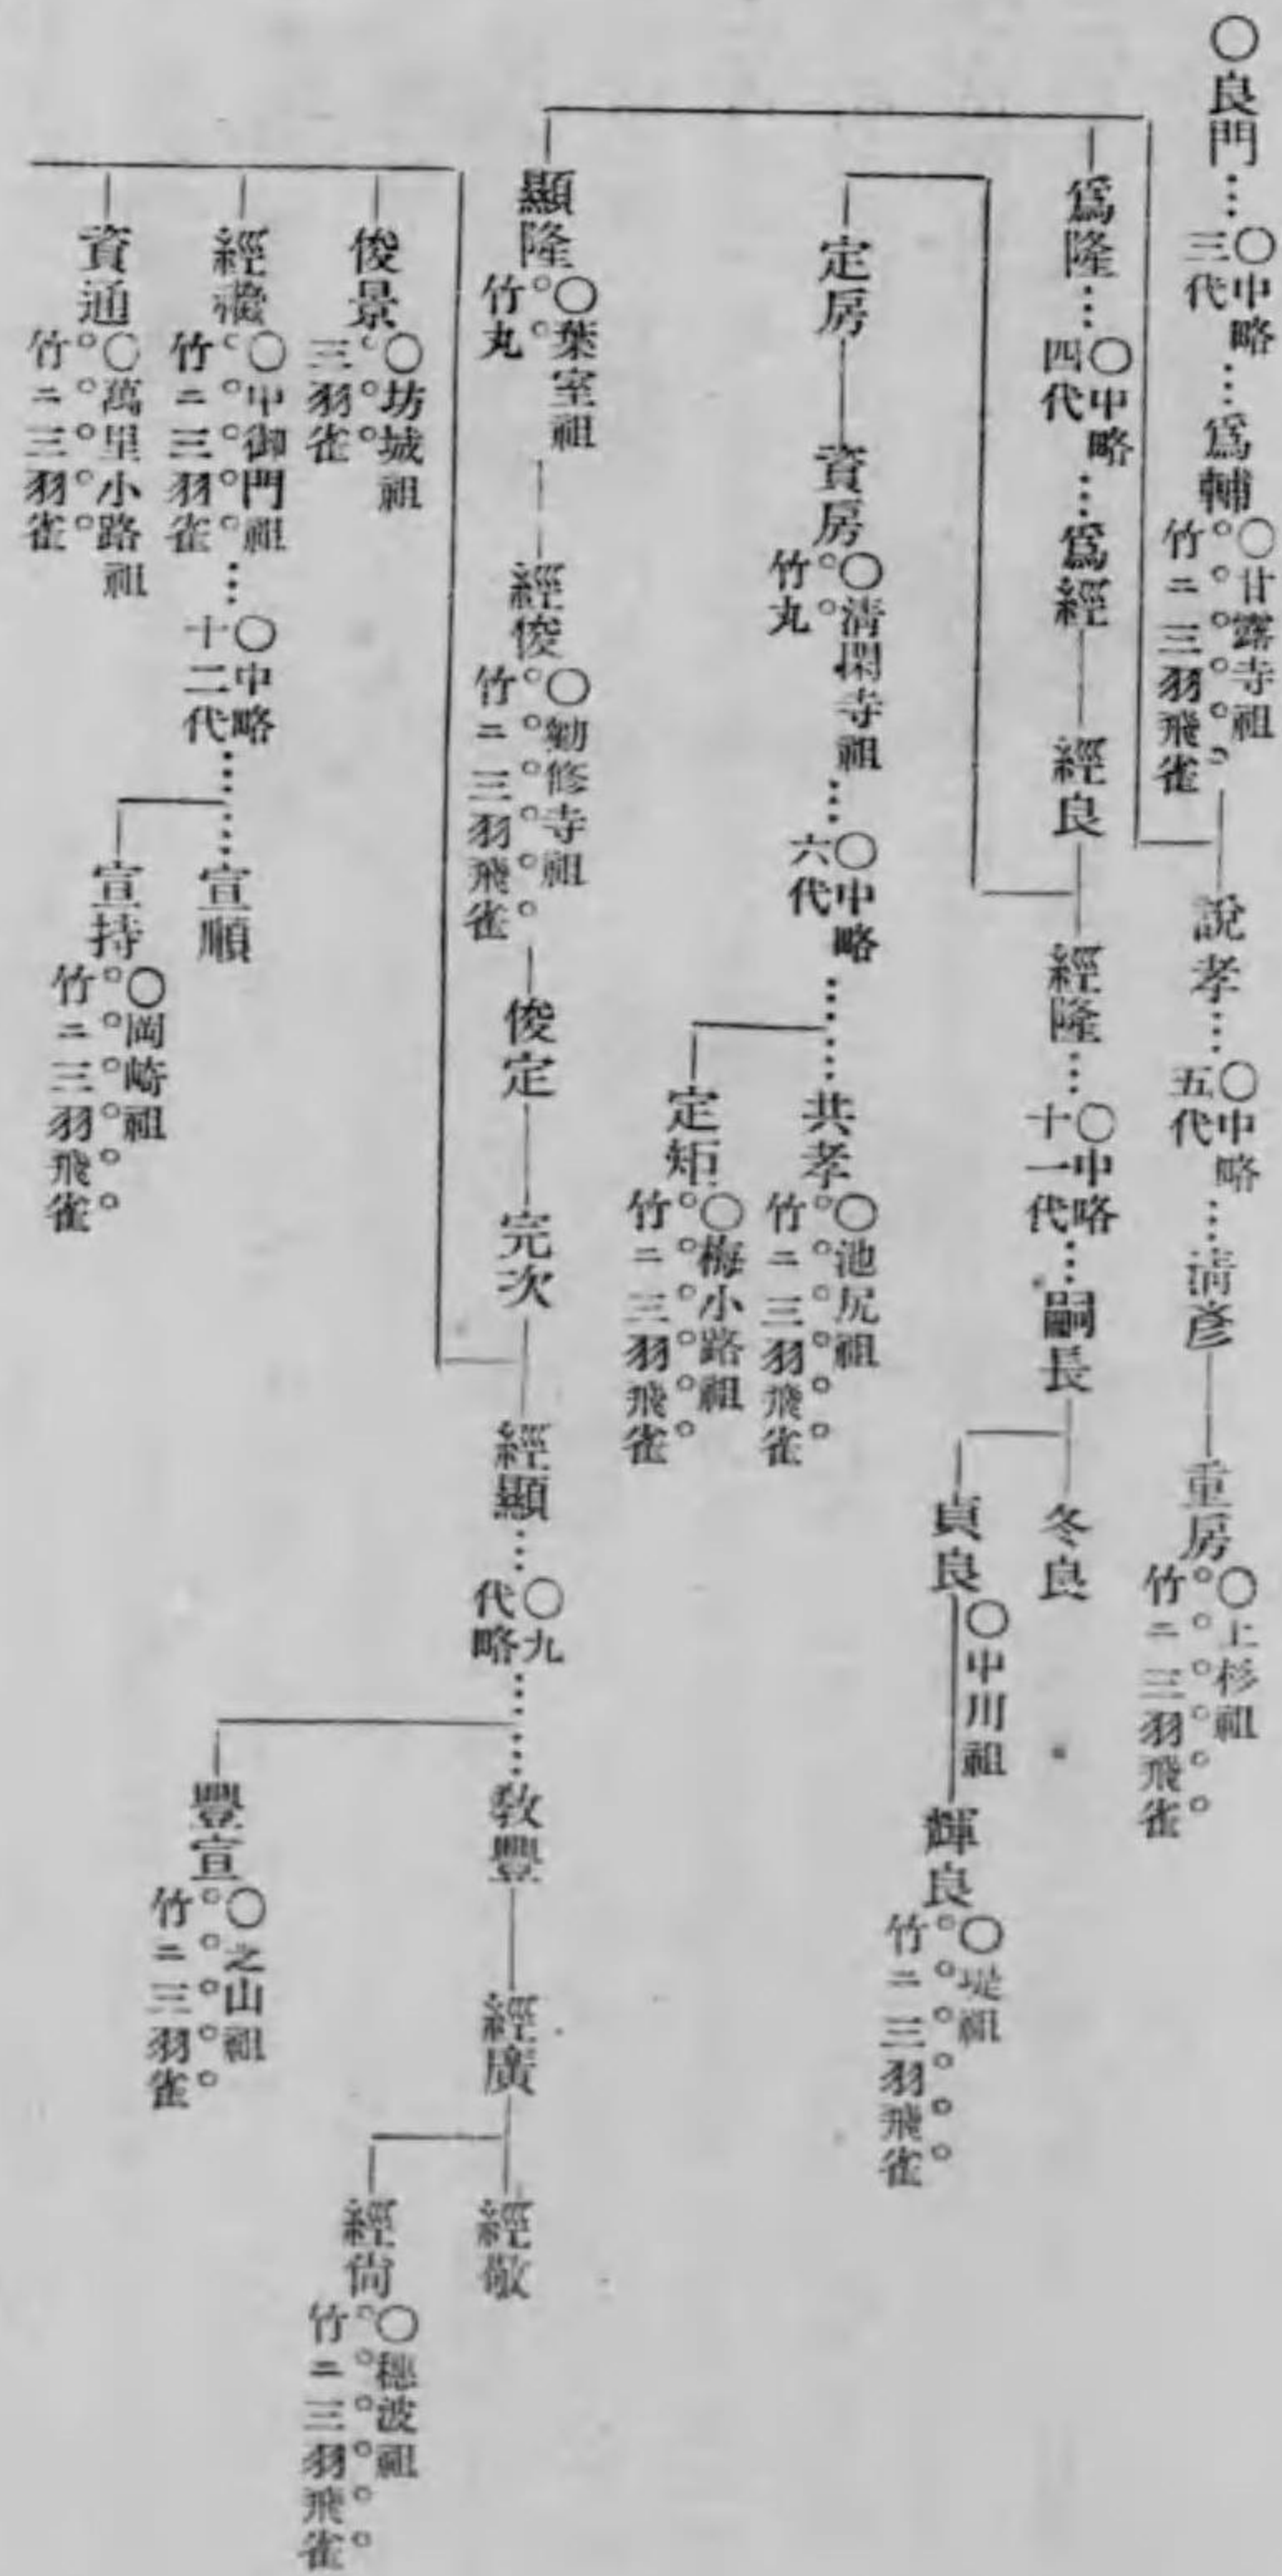 ○良門…○中略三代…爲輔○甘露寺祖竹ニ三羽飛雀
說孝…○中略五代…淸彥
重房○上杉祖竹ニ三羽飛雀
爲隆…○中略四代…爲經
經良
經隆…○中略十一代…嗣長
冬良
貞良○中川祖
輝良○堤祖竹ニ三羽飛雀
定房
資房○淸閑寺祖竹丸…○中略六代……共孝○池尻祖竹ニ三羽飛雀
定矩○梅小路祖竹ニ三羽飛雀
顯隆○葉室祖竹丸
經俊○勧修寺祖竹ニ三羽飛雀
俊定
完次
經顯…○九代略……敎豐
經廣
經敬
經尙○穗波祖竹ニ三羽飛雀
豐宣○之山祖竹ニ三羽雀
俊景○坊城祖三羽雀
經繼○中御門祖竹ニ三羽雀…○中略十二代……宣順
宣持○岡崎祖竹ニ三羽飛雀
資通○萬里小路祖竹ニ三羽雀